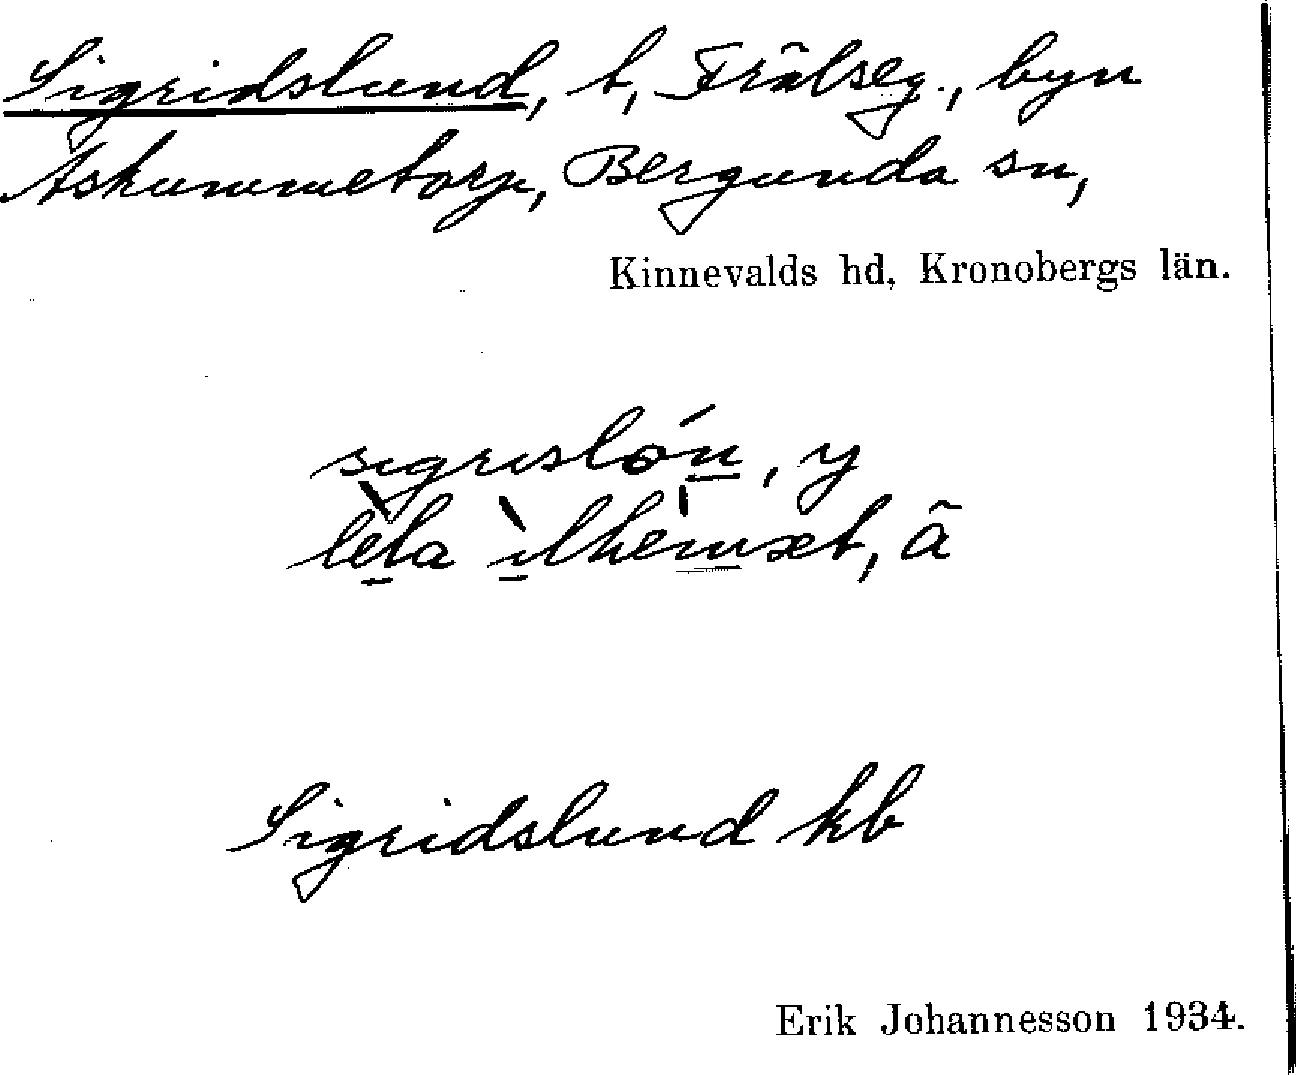 Sigridslund, t, Frälseg., byn
Askummetorp, Bergunda sn,
Kinnevalds hd, Kronobergs län.
sigrislón, y
lela ilhemæt, ā
Sigridslund kb
Erik Johannesson 1934.